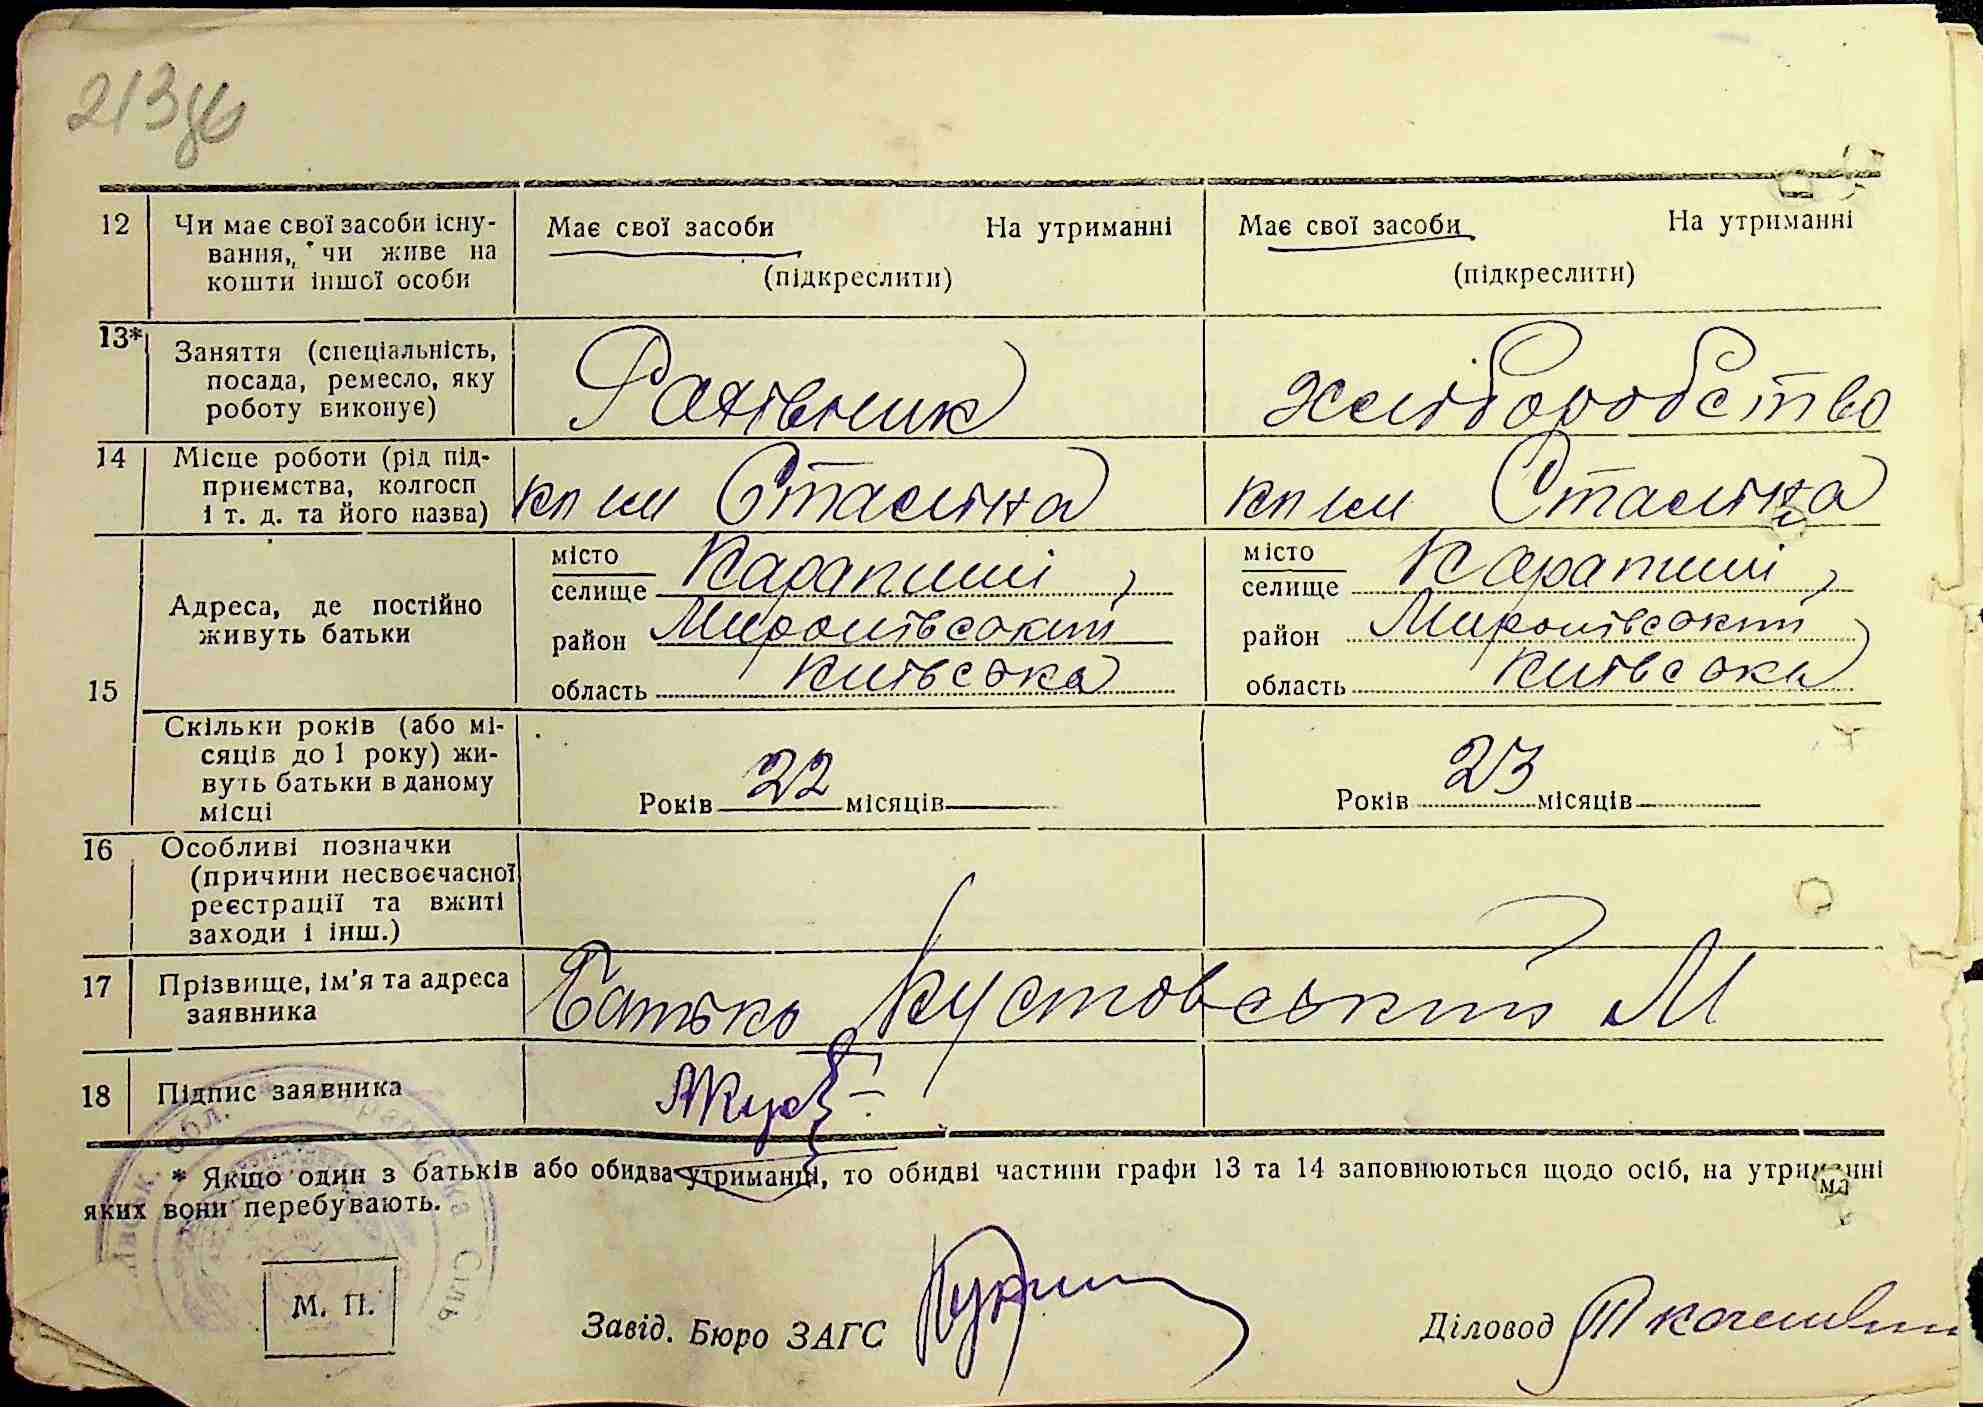 213зв
12 Чи має свої засоби існу- Має свої засоби На утриманні Має свої засоби На утриманні
вання, чи живе на
кошти іншої особи (підкреслити) (підкреслити)
13* Заняття (спеціальність,
посада, ремесло, яку Рахівник хліборобство
роботу виконує)
14 Місце роботи (рід під-
приємства, колгосп кп ім Сталіна кп ім Сталіна
і т. д. та його назва)
15 Адреса, де постійно
живуть батьки
місто
селище Карапиші, район Миронівський область Київська
місто
селище Карапиші, район Миронівський область Київська
Скільки років (або мі-
сяців до 1 року) жи-
вуть батьки в даному
місці
Років 22 місяців Років 23 місяців
16 Особливі позначки
(причини несвоєчасної
реєстрації та вжиті
заходи і інш.)
17 Прізвище, ім'я та адреса
заявника Батько Кустовський М
18 Підпис заявника
* Якщо один з батьків або обидва утриманці, то обидві частини графи 13 та 14 заповнюються щодо осіб, на утриманні
яких вони перебувають.
М. П. Завід. Бюро ЗАГС Діловод